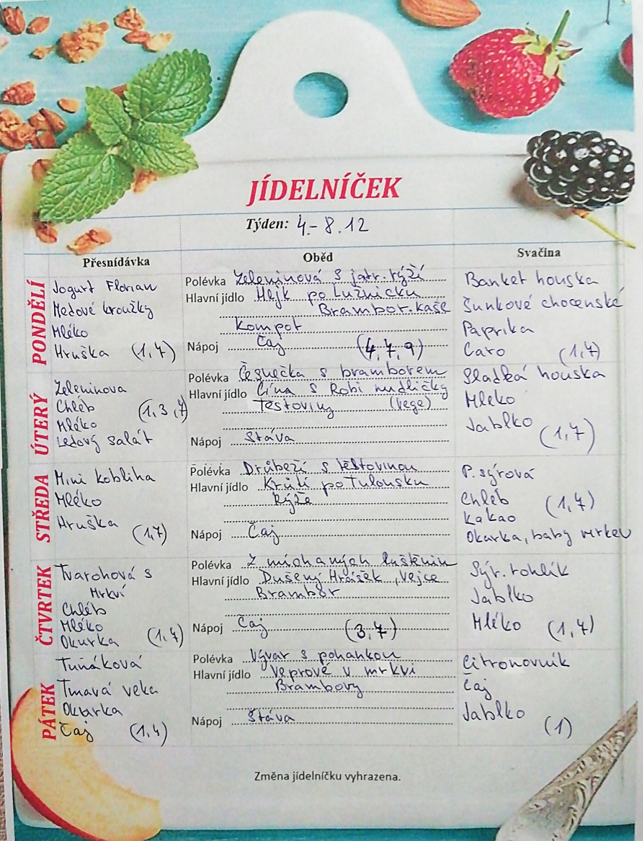 JÍDELNÍČEK
Týden: 4.-8.12
Přesnídávka
Oběd
Svačina
PONDĚLÍ
Jogurt Florian
Medové kroužky
Mléko
Hruška (1,7)
Polévka Zeleninová s játr. rýží
Hlavní jídlo Hejk po Lužnicku
Brambor. kaše
Kompot
Nápoj Čaj (4,7,9)
Banket houska
Šunkové chocenské
Paprika
Caro (1,7)
ÚTERÝ
Zeleninová
Chléb (1,3,7)
Mléko
Ledový salát
Polévka Česnečka s bramborem
Hlavní jídlo Čína s Robi nudličky
Těstoviny (vege)
Nápoj Štáva
Sladká houska
Mléko
Jablko (1,7)
STŘEDA
Mini kobliha
Mléko
Hruška (1,7)
Polévka Drůbeží s těstovinou
Hlavní jídlo Krůtí po Tulonsku
Rýže
Nápoj Čaj
P. sýrová
Chléb (1,7)
Kakao
Okurka, baby mrkev
ČTVRTEK
Tvarohová s
Mrkví
Chléb
Mléko
Okurka (1,7)
Polévka Z míchaných luštěnin
Hlavní jídlo Dušený Hrášek, Vejce
Brambor
Nápoj Čaj (3,7)
Sýr. rohlík
Jablko
Mléko (1,7)
PÁTEK
Tuňáková
Tmavá veka
Okurka
Čaj (1,4)
Polévka Vývar s pohankou
Hlavní jídlo Vepřové v mrkvi
Brambory
Nápoj Štáva
Citronovník
Čaj
Jablko (1)
Změna jídelníčku vyhrazena.